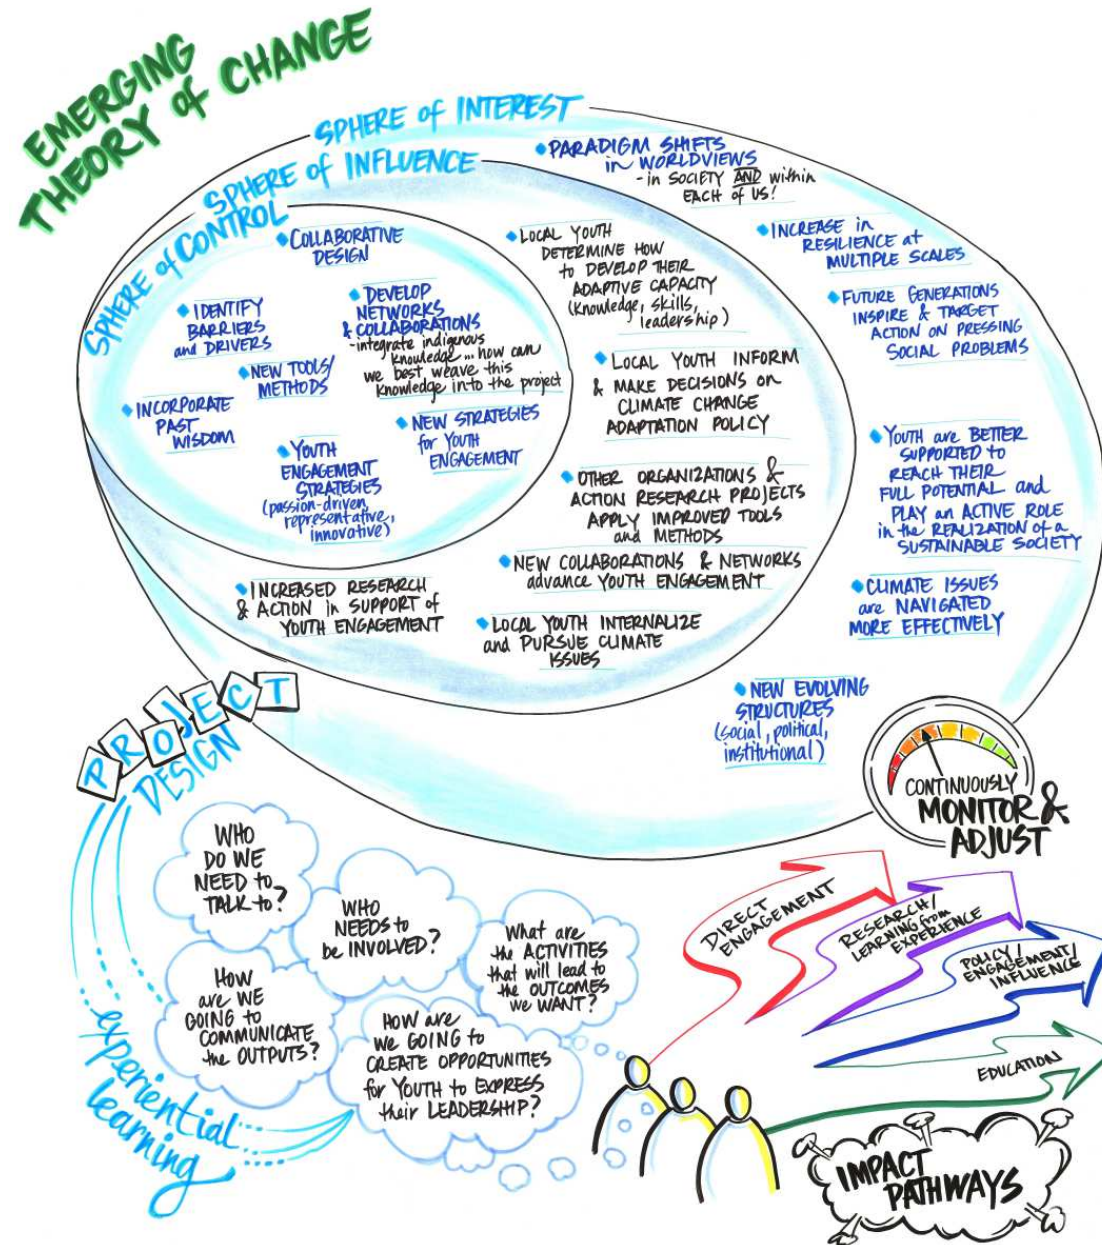 EMERGING
THEORY of CHANGE
SPHERE of INTEREST
SPHERE of INFLUENCE
SPHERE of CONTROL
COLLABORATIVE
DESIGN
IDENTIFY
BARRIERS
and DRIVERS
DEVELOP
NETWORKS
& COLLABORATIONS
-integrate indigenous
knowledge... how can
we best weave this
knowledge into the project
NEW TOOLS/
METHODS
INCORPORATE
PAST
WISDOM
NEW STRATEGIES
for YOUTH
ENGAGEMENT
YOUTH
ENGAGEMENT
STRATEGIES
(passion-driven,
representative,
innovative)
LOCAL YOUTH
DETERMINE HOW
to DEVELOP THEIR
ADAPTIVE CAPACITY
(knowledge, skills,
leadership)
LOCAL YOUTH INFORM
& MAKE DECISIONS on
CLIMATE CHANGE
ADAPTATION POLICY
OTHER ORGANIZATIONS &
ACTION RESEARCH PROJECTS
APPLY IMPROVED TOOLS
and METHODS
NEW COLLABORATIONS & NETWORKS
advance YOUTH ENGAGEMENT
INCREASED RESEARCH
& ACTION in SUPPORT of
YOUTH ENGAGEMENT
LOCAL YOUTH INTERNALIZE
and PURSUE CLIMATE
ISSUES
PARADIGM SHIFTS
in WORLDVIEWS
- in SOCIETY AND within
EACH of US!
INCREASE in
RESILIENCE at
MULTIPLE SCALES
FUTURE GENERATIONS
INSPIRE & TARGET
ACTION ON PRESSING
SOCIAL PROBLEMS
YOUTH are BETTER
SUPPORTED to
REACH THEIR
FULL POTENTIAL and
PLAY an ACTIVE ROLE
in the REALIZATION of a
SUSTAINABLE SOCIETY
CLIMATE ISSUES
are NAVIGATED
MORE EFFECTIVELY
NEW EVOLVING
STRUCTURES
(social, political,
institutional)
CONTINUOUSLY
MONITOR &
ADJUST
PROJECT
DESIGN
WHO
DO WE
NEED to
TALK to?
WHO
NEEDS to
be INVOLVED?
What are
the ACTIVITIES
that will lead to
the OUTCOMES
we WANT?
HOW
are WE
GOING to
COMMUNICATE
the OUTPUTS?
HOW are
we GOING to
CREATE OPPORTUNITIES
for YOUTH to EXPRESS
their LEADERSHIP?
experiential
learning
DIRECT
ENGAGEMENT
RESEARCH/
LEARNING from
EXPERIENCE
POLICY/
ENGAGEMENT/
INFLUENCE
EDUCATION
IMPACT
PATHWAYS